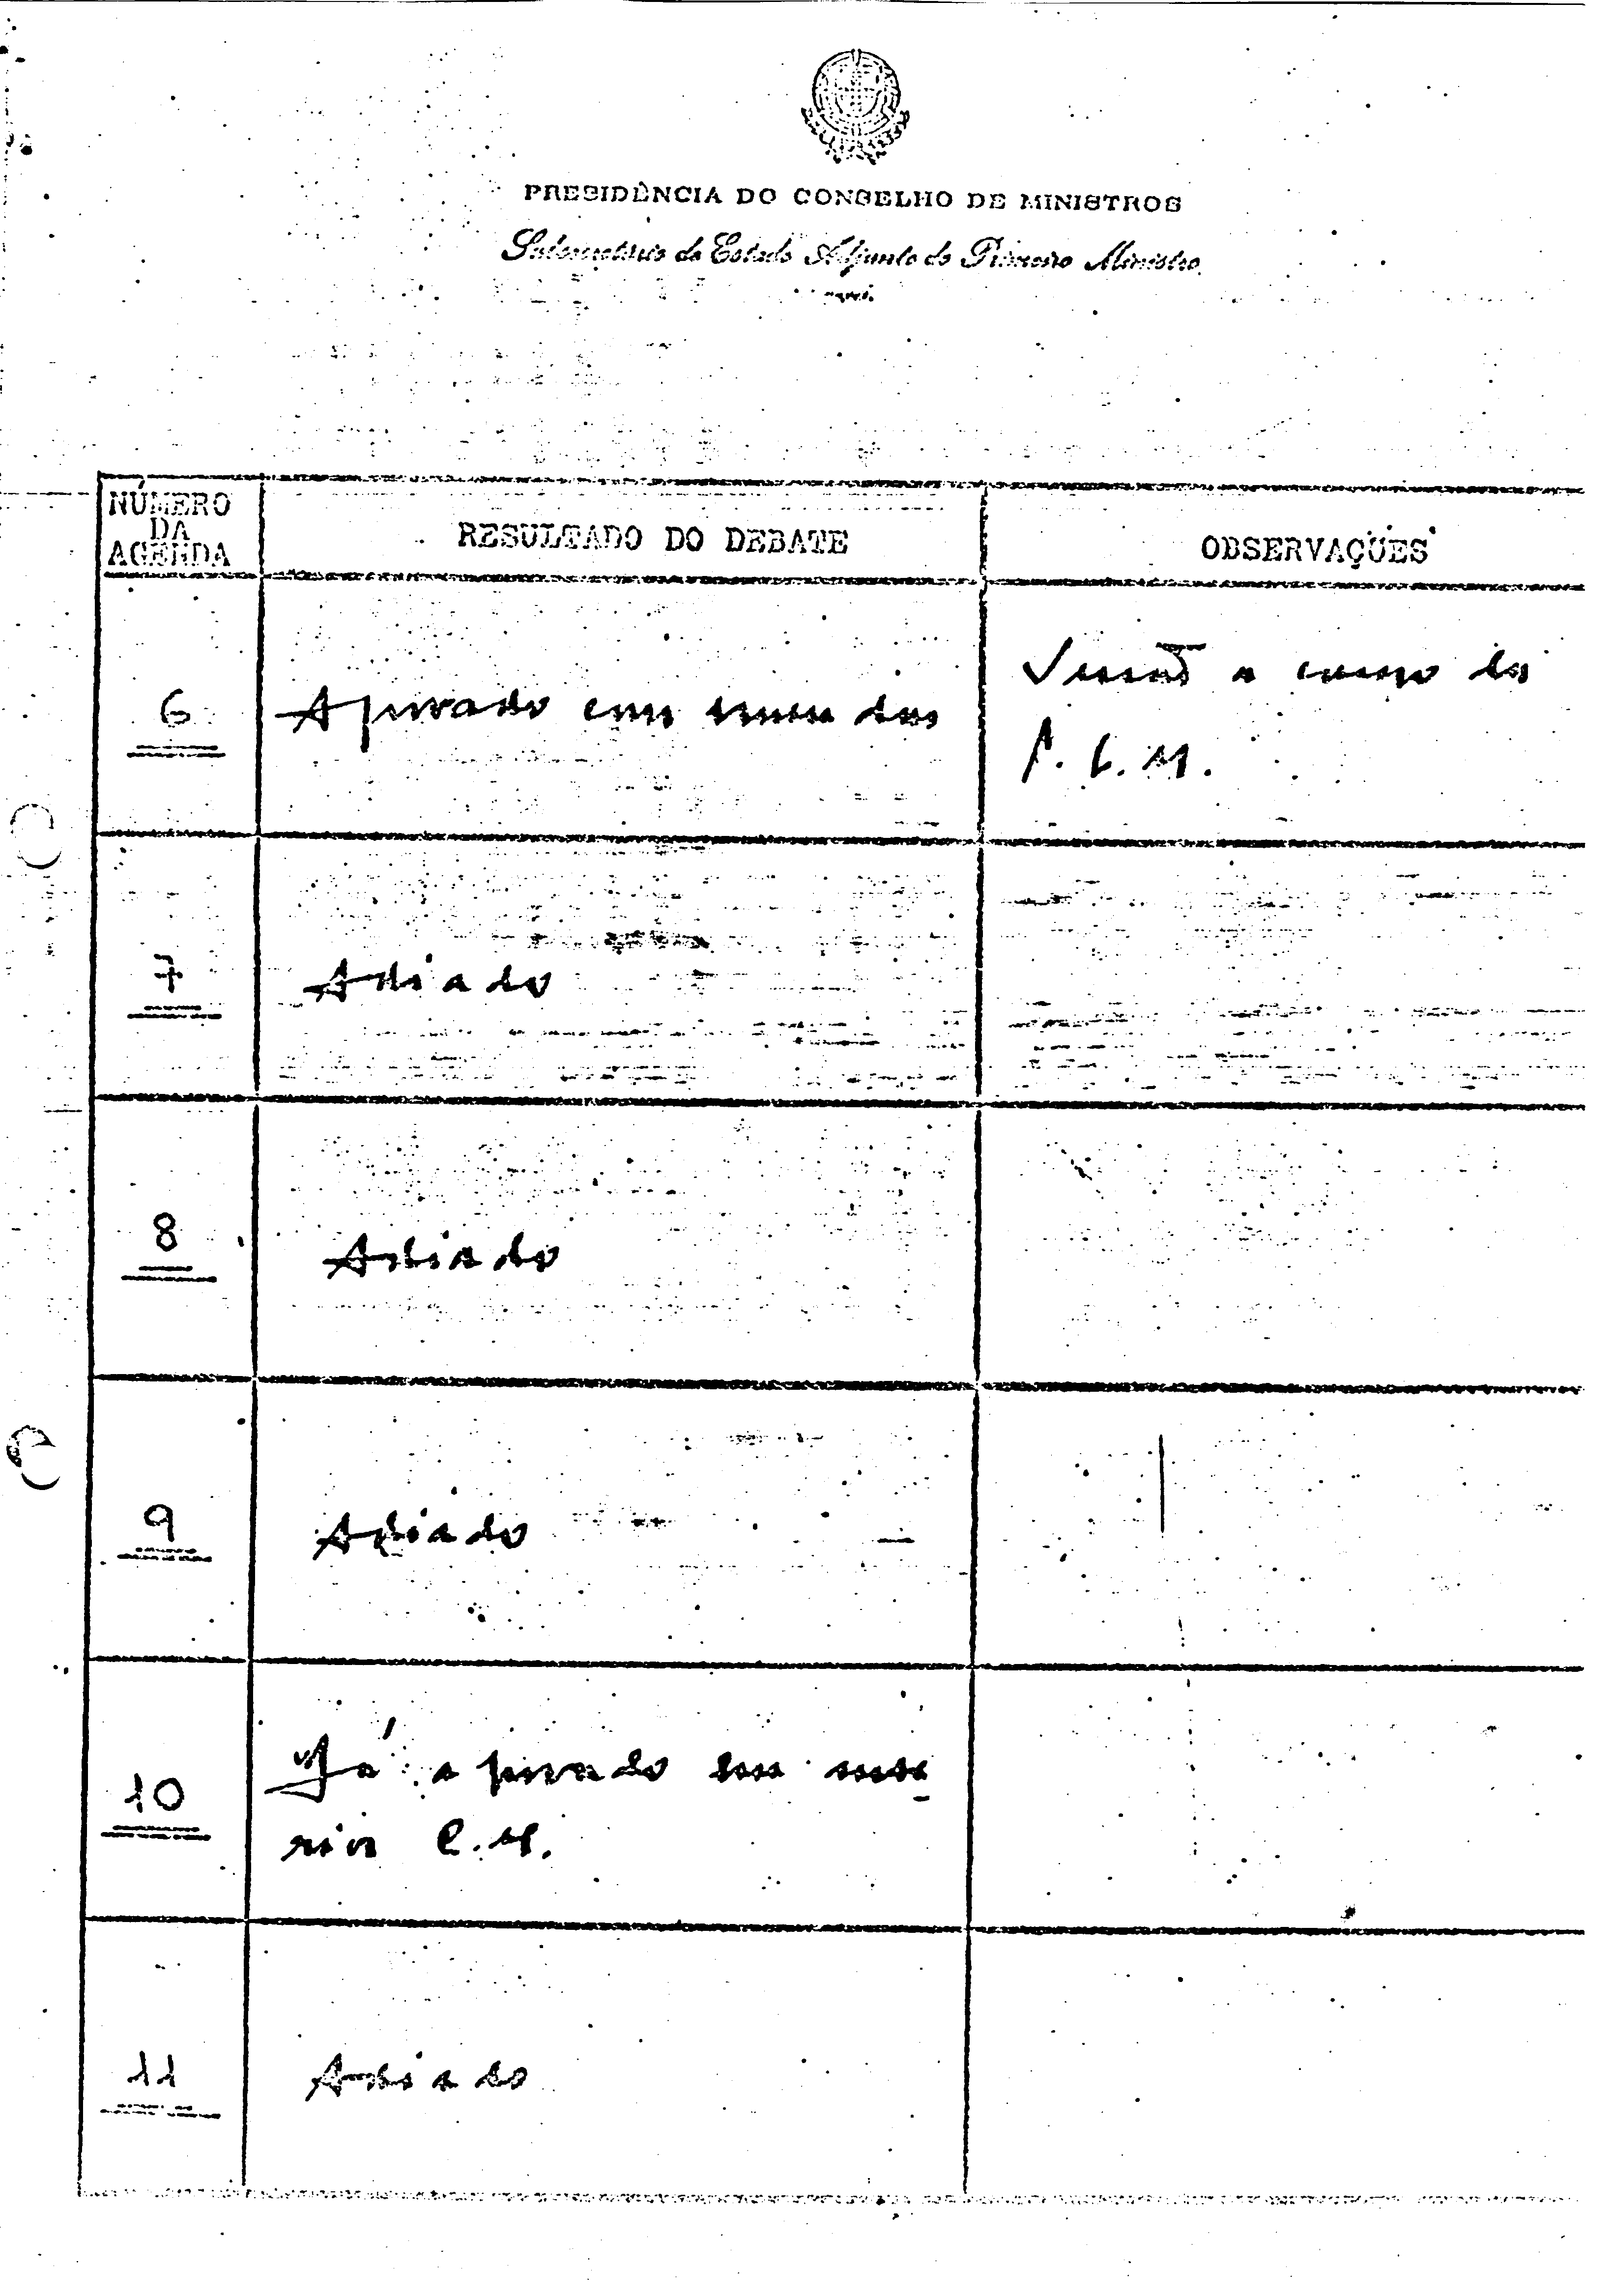 PRESIDÊNCIA DO CONSELHO DE MINISTROS
Subsecretário de Estado Adjunto do Primeiro Ministro
NÚMERO DA AGENDA
RESULTADO DO DEBATE
OBSERVAÇÕES
6
Aprovado com emendas
a cargo da
P. C. M.
7
Adiado
8
Adiado
9
Adiado
10
Já aprovado em
C. M.
11
Adiado